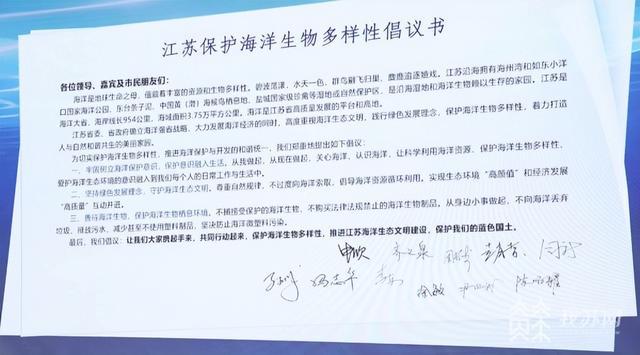 江苏保护海洋生物多样性倡议书
各位领导、嘉宾及市民朋友们：
海洋是地球生命之母，蕴藏着丰富的资源和生物多样性。碧波荡漾，水天一色，群鸟翩飞归巢，麋鹿追逐嬉戏。江苏沿海拥有海州湾和如东小洋
口国家海洋公园、东台条子泥、中国黄（渤）海候鸟栖息地、盐城国家级珍禽等湿地或自然保护区，是沿海湿地和海洋生物赖以生存的家园。江苏是
海洋大省，海岸线长954公里，海域面积3.75万平方公里，海洋是江苏省高质量发展的平台和高地。
江苏省委、省政府确立海洋强省战略，大力发展海洋经济的同时，高度重视海洋生态文明，践行绿色发展理念，保护海洋生物多样性，着力打造
人与自然和谐共生的美丽家园。
为切实保护海洋生物多样性，推进海洋保护与开发的和谐统一，我们郑重地提出如下倡议：
一、牢固树立海洋保护意识，保护意识融入生活。从我做起，从现在做起，关心海洋、认识海洋，让科学利用海洋资源、保护海洋生物多样性、
爱护海洋生态环境的意识融入到我们每个人的日常工作与生活中。
二、坚持绿色发展理念，守护海洋生态文明。尊重自然规律，不过度向海洋索取，倡导海洋资源循环利用，实现生态环境“高颜值”和经济发展
“高质量”互动并进。
三、善待海洋生物，保护海洋生物栖息环境。不捕捞受保护的海洋生物、不购买法律法规禁止的海洋生物制品，从身边小事做起，不向海洋丢弃
垃圾、排放污水，减少甚至不使用塑料制品，坚决防止海洋微塑料污染。
最后，我们倡议：让我们大家携起手来，共同行动起来，保护海洋生物多样性，推进江苏海洋生态文明建设，保护我们的蓝色国土。
冯志华
徐敏
我苏网